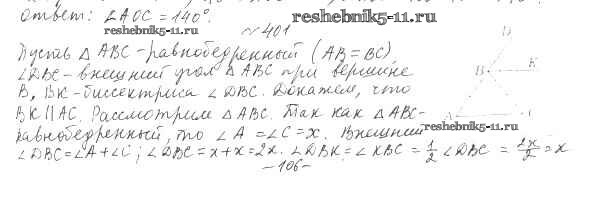 ответ: ∠AOC = 140°.
reshebnik5-11.ru
№ 401
Пусть △ ABC - равнобедренный (AB = BC)
∠DBC - внешний угол △ ABC при вершине
B, BK - биссектриса ∠ DBC. Докажем, что
BK || AC. Рассмотрим △ ABC. Так как △ ABC-
равнобедренный, то ∠ A = ∠C = x. Внешний
∠ DBC = ∠A + ∠C; ∠ DBC = x + x = 2x. ∠ DBK = ∠ KBC = 1/2 ∠ DBC = 2x/2 = x
- 106 -
reshebnik5-11.ru
D
B
K
A
C
reshebnik5-11.ru